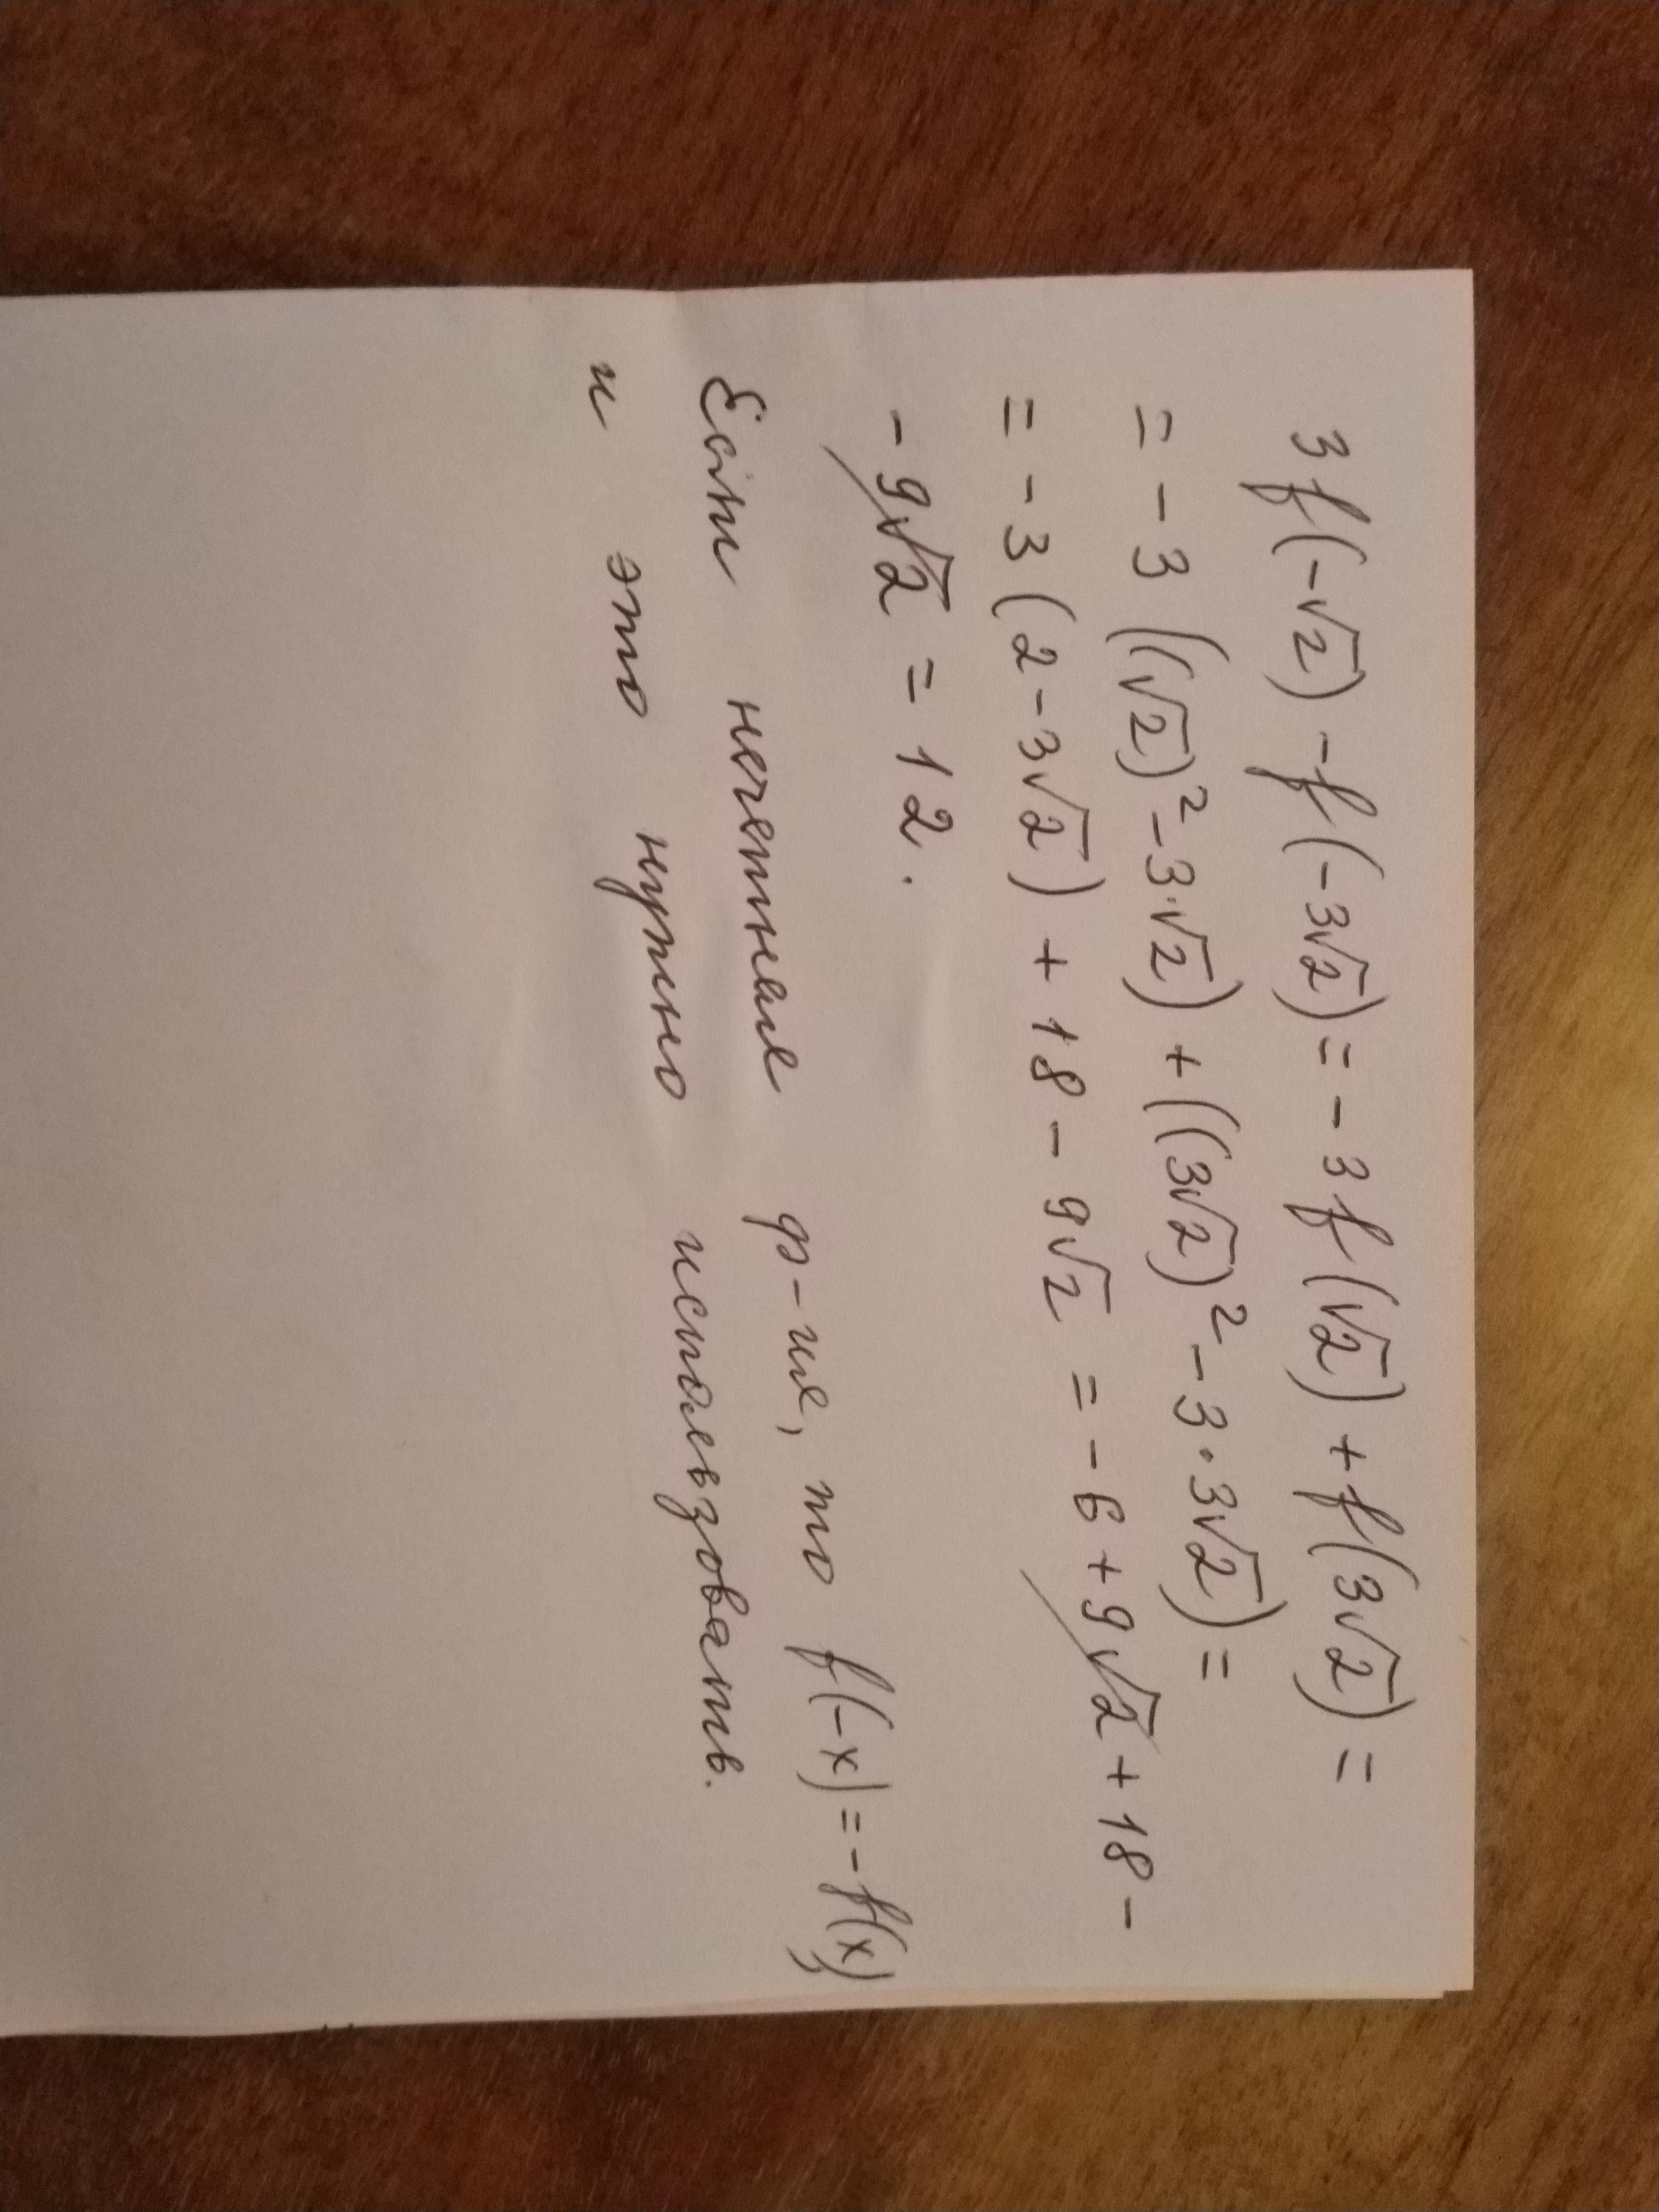 3f(-√2) - f(-3√2) = -3f(√2) + f(3√2) =
= -3((√2)² - 3·√2) + ((3√2)² - 3·3√2) =
= -3(2 - 3√2) + 18 - 9√2 = -6 + 9√2 + 18 -
- 9√2 = 12.
Если нечетная ф-ия, то f(-x) = -f(x)
и это нужно использовать.